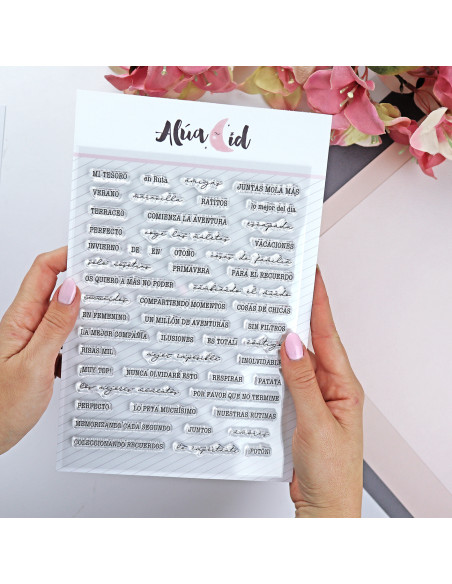 Alúa Cid
MI TESORO en Ruta amigas JUNTAS MOLA MÁS
VERANO maravilla RATITOS lo mejor del día
TERRACEO COMIENZA LA AVENTURA escapada
PERFECTO coge las maletas VACACIONES
INVIERNO DE EN OTOÑO cosas de familia
sólo nosotros PRIMAVERA PARA EL RECUERDO
OS QUIERO A MÁS NO PODER cambiando el mundo
COMPARTIENDO MOMENTOS COSAS DE CHICAS
EN FEMENINO UN MILLÓN DE AVENTURAS SIN FILTROS
LA MEJOR COMPAÑÍA ILUSIONES ES TOTAL! contigo
RISAS MIL INOLVIDABLE
¡MUY TOP! NUNCA OLVIDARÉ ESTO RESPIRAR PATATA
los mejores momentos POR FAVOR QUE NO TERMINE
PERFECTO LO PETA MUCHÍSIMO NUESTRAS RUTINAS
MEMORIZANDO CADA SEGUNDO JUNTOS
COLECCIONANDO RECUERDOS lo importante FOTÓN!